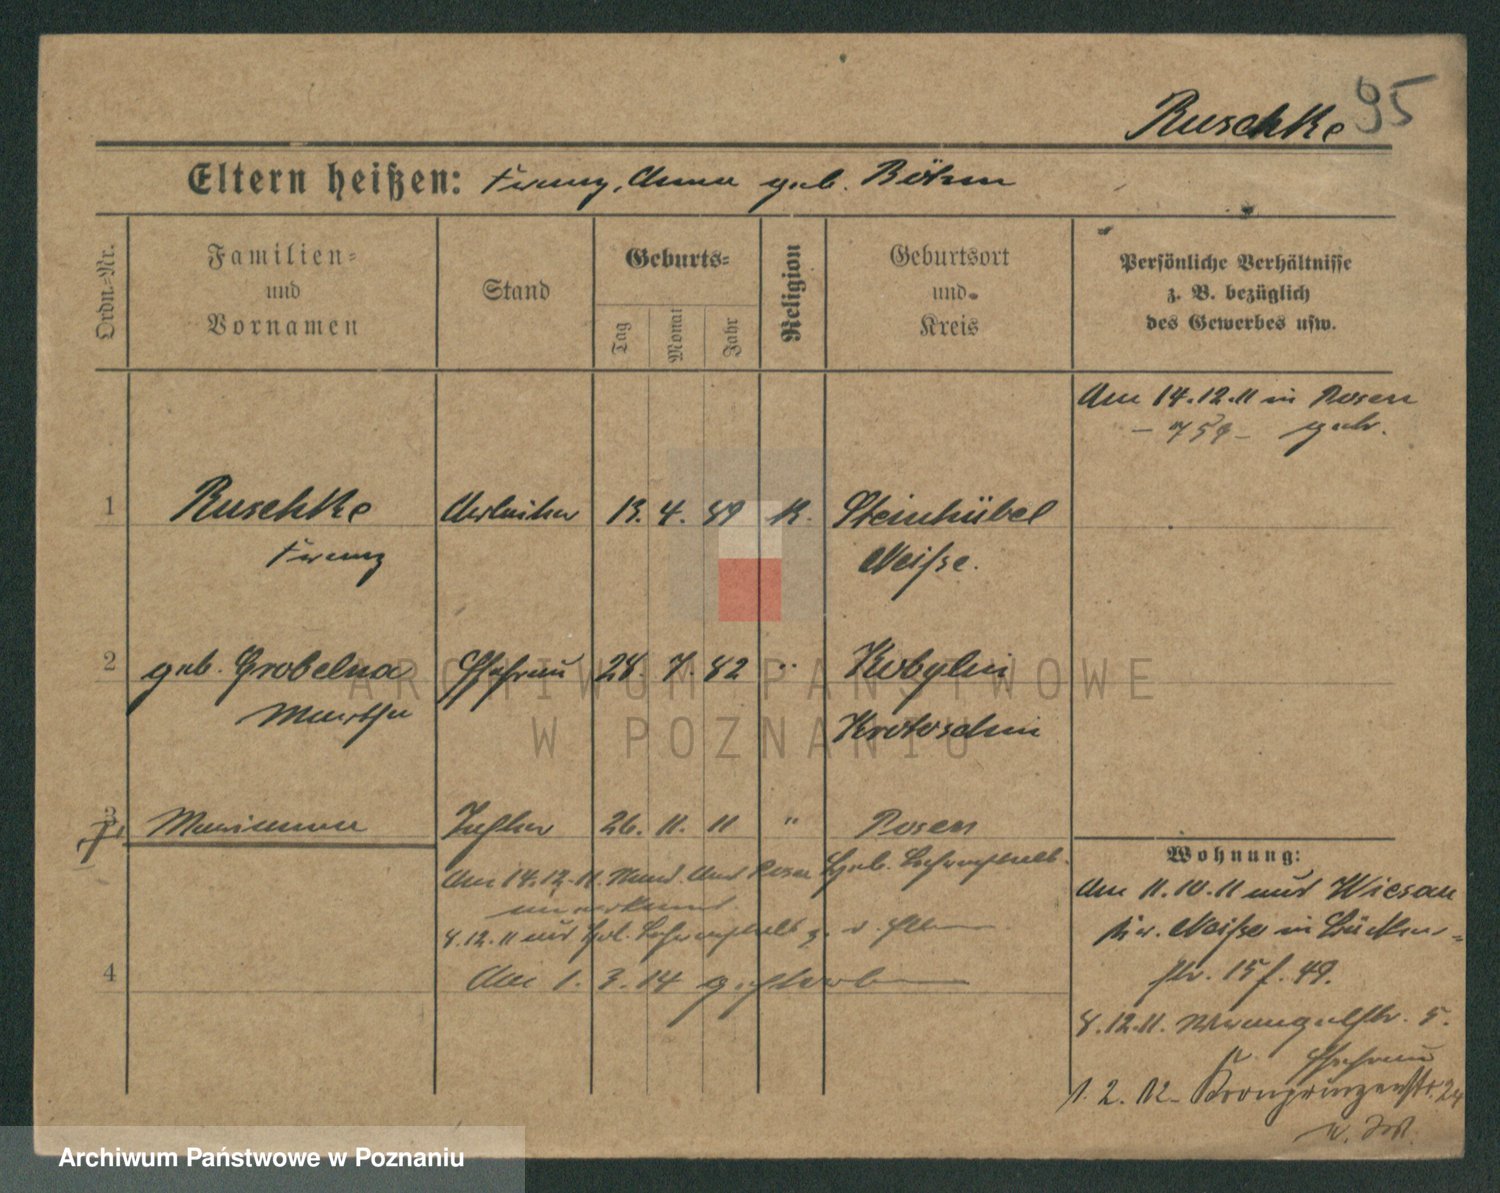 Ruschke 95
Eltern heißen: Franz, Anna geb. Böhm
Ordn.-Nr.
Familien-
und
Vornamen
Stand
Geburts-
Tag
Monat
Jahr
Religion
Geburtsort
und
Kreis
Persönliche Verhältnisse
z. B. bezüglich
des Gewerbes usw.
Am 14.12.11 in Posen
- 759 - getr.
1 Ruschke Arbeiter 13. 4. 89 K. Steinhübel
Franz Neisse.
2 geb. Grobelna Ehefrau 28. 7. 82 " Kobylin
Martha Krotoschin
3 Marianna Tochter 26. 11. 11 " Posen
Am 14.12.11. Posen
anerkannt
8.12.11
4 Am 1. 3. 14 gestorben
Wohnung:
Am 11.10.11 aus Wiesau
Kr. Neisse in
str. 15 f. 49.
8.12.11. Wrangelstr. 5.
Ehefrau
1. 2. 12 - Kronprinzenstr. 24
ARCHIWUM PAŃSTWOWE
W POZNANIU
Archiwum Państwowe w Poznaniu